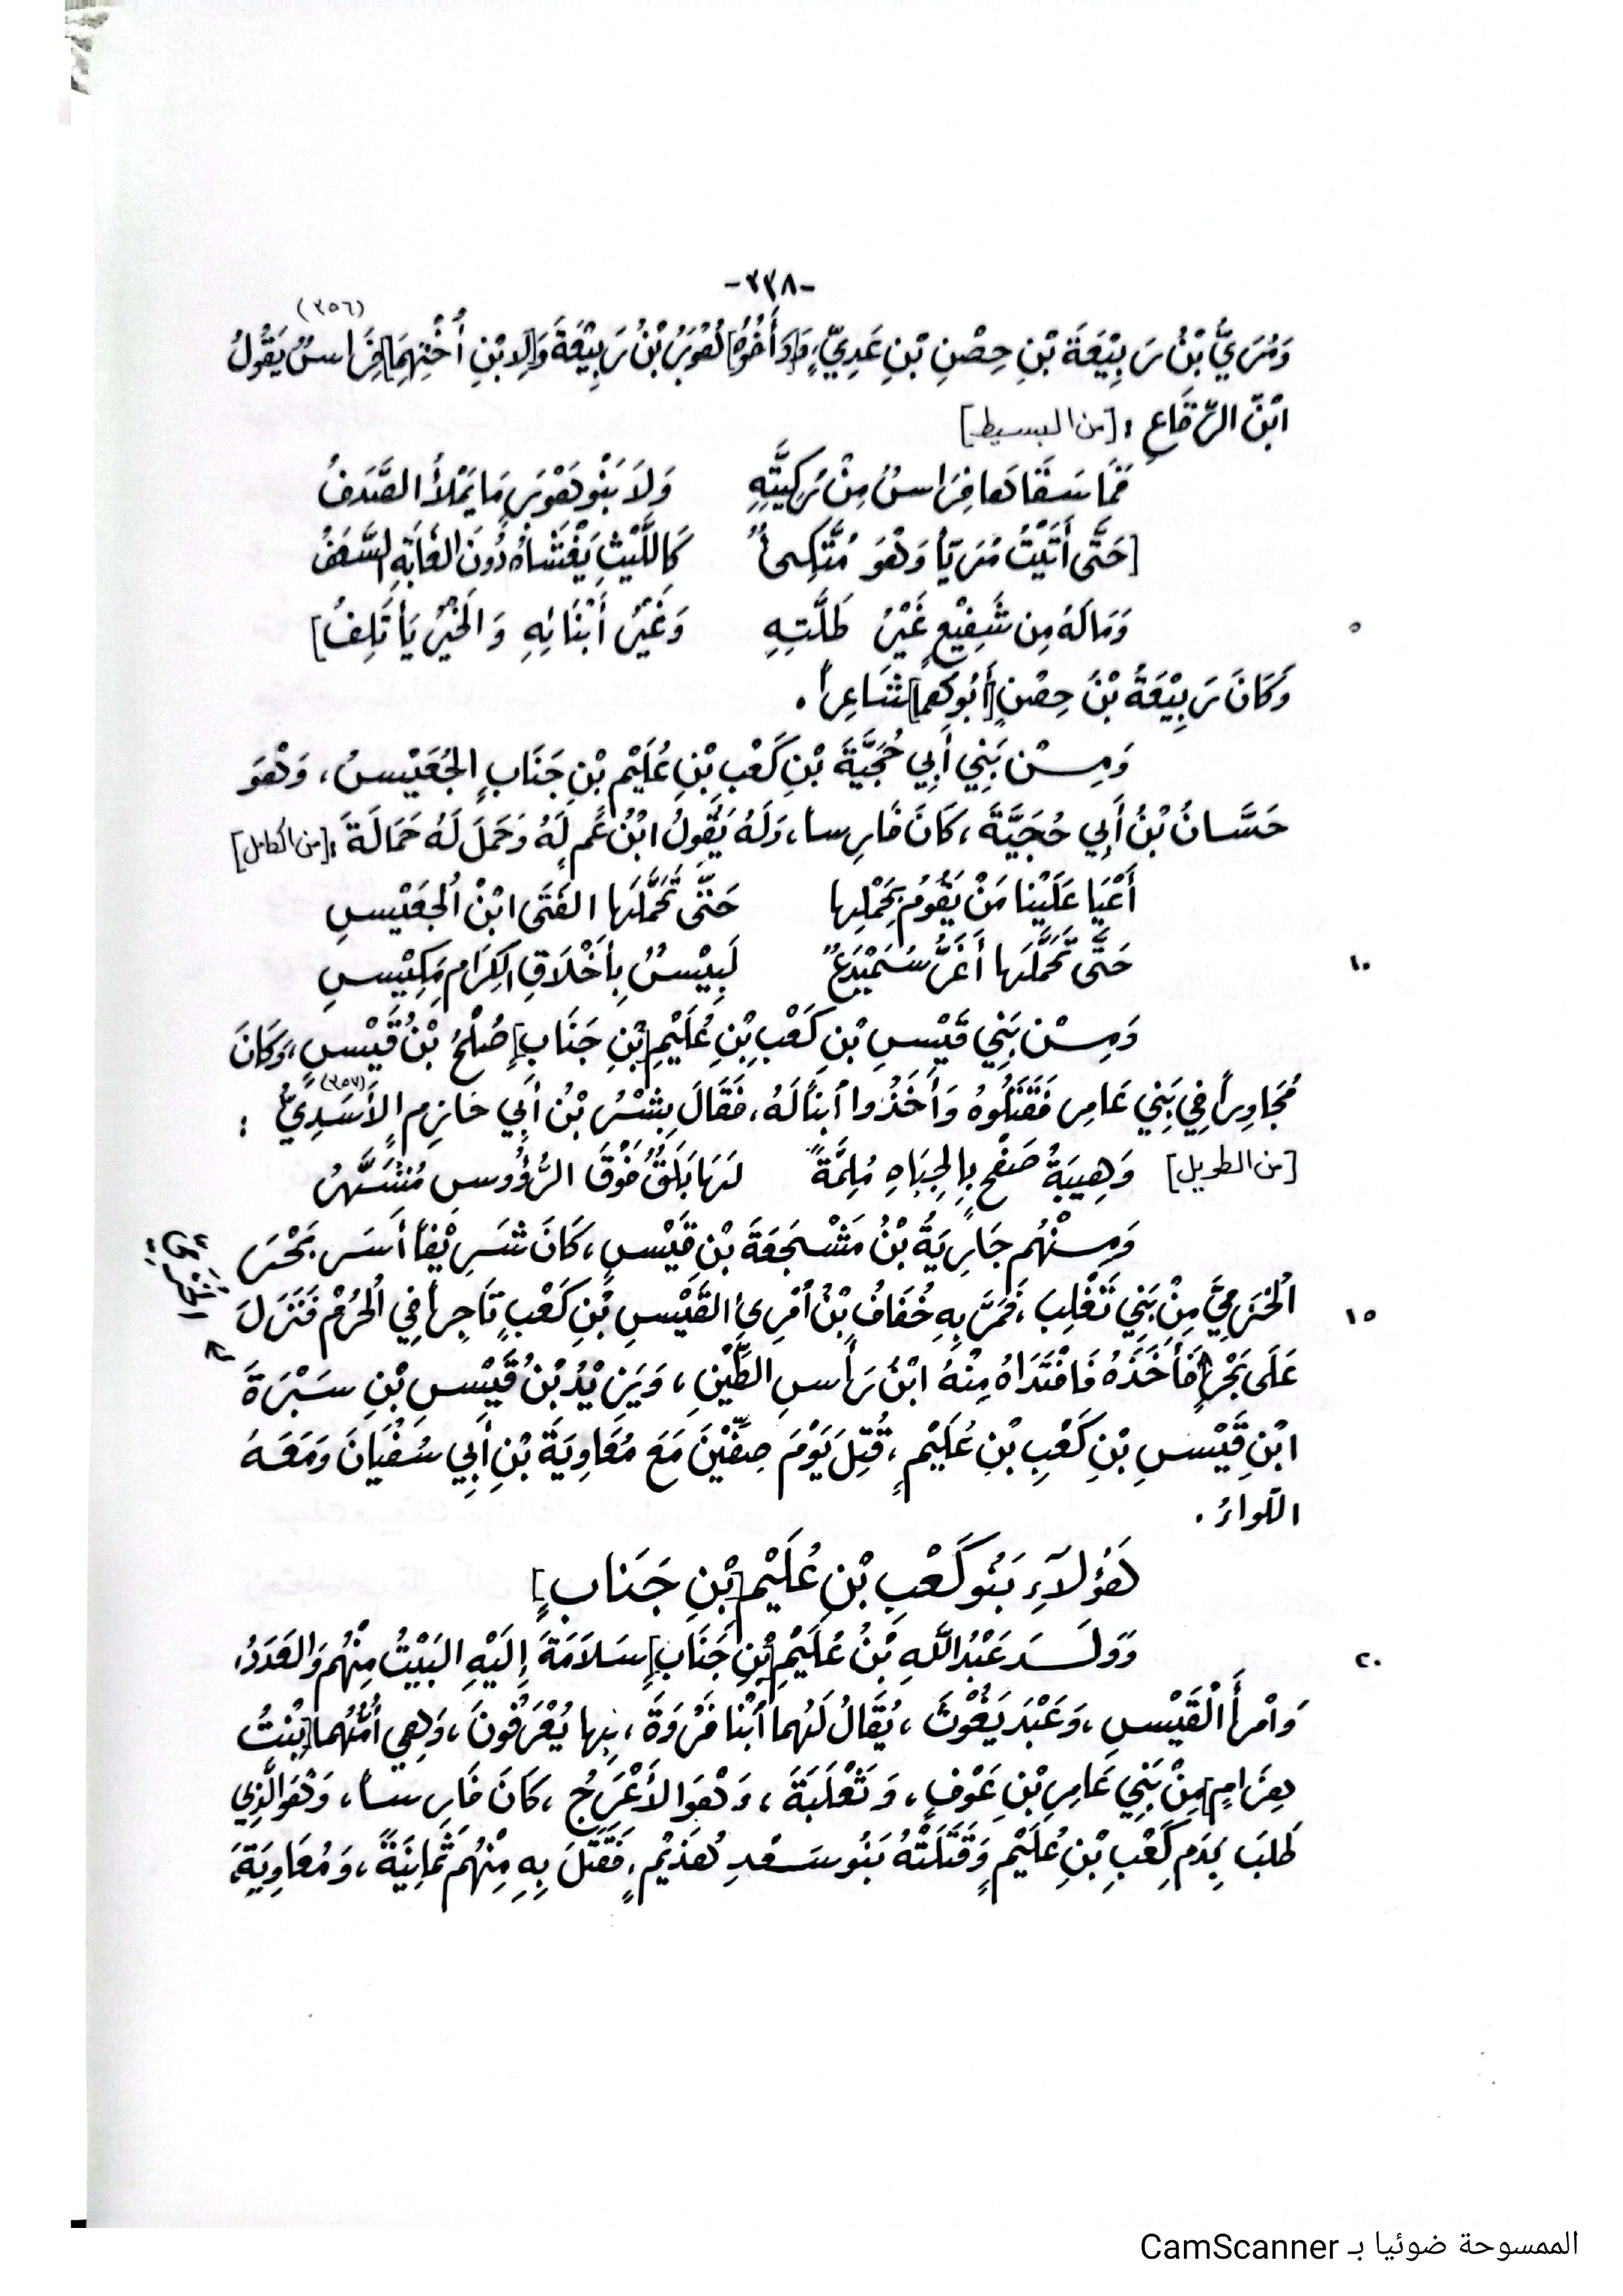 -٣٣٨-
(٣٥٦)
وَمُرَيُّ بْنُ رَبِيْعَةَ بْنِ حِصْنِ بْنِ عَدِيٍّ، وَ[أَخُوْهُ] هَوْبَرُ بْنُ رَبِيْعَةَ وَ[لِابْنِ أُخْتِهِمَا] فِرَاسٌ يَقُولُ
ابْنُ الرِّقَاعِ : [من البسيط]
فَمَا سَقَاهَا فِرَاسٌ مِنْ رَكِيَّتِهِ وَلاَ بَنُو هَوْبَرٍ مَا يَمْلأُ الصَّدَفُ
[حَتَّى أَتَيْتُ مُرَيّاً وَهْوَ مُتَّكِىءٌ كَاللَّيْثِ يَغْشَاهُ دُونَ الغَابَةِ السَّعَفُ
٥ وَمَا لَهُ مِن شَفِيْعٍ غَيْرُ طَلَّتِهِ وَغَيْرُ أَبْنَائِهِ وَالخَيْرُ يَأتَلِفُ]
وَكَانَ رَبِيْعَةُ بْنُ حِصْنٍ [أَبُوهُما] شَاعِراً .
وَمِـنْ بَنِي أَبِي حُجَيَّةَ بْنِ كَعْبِ بْنِ عُلَيْمِ بْنِ جَنَابٍ الجُعَيْسُ، وَهْوَ
حَسَّانُ بْنُ أَبِي حُجَيَّةَ، كَانَ فَارِساً، وَلَهُ يَقُولُ ابْنُ عَمٍ لَهُ وَحَمَلَ لَهُ حَمَالَةً : [من الكامل]
أَعْيَا عَلَيْنَا مَنْ يَقُومُ بِحَمْلِها حَتَّى تَحَمَّلَها الفَتَى ابْنُ الجُعَيْسِ
١٠ حَتَّى تَحَمَّلَها أَغَرُّ سُمَيْدَعٌ لَبِيْسٌ بِأَخْلَاقِ الكِرَامِ مَكِيْسِ
وَمِـنْ بَنِي قَيْسِ بْنِ كَعْبِ بْنِ عُلَيْمِ [بْنِ جَنَابٍ] صُلْحُ بْنُ قَيْسٍ، وَكَانَ
مُجَاوِراً فِي بَنِي عَامِرٍ فَقَتَلُوهُ وَأَخَذُوا ابْناً لَهُ، فَقَالَ بِشْرُ بْنُ أَبِي خَازِمٍ الأَسَدِيُّ (٣٥٧) :
[من الطويل] وَهِيبَةُ صَفْحٍ بِالجِبَاهِ مُلِمَّةً لَهَا بَلَقٌ فَوْقَ الرُّؤُوسِ مُشَهَّرُ
وَمِـنْهُم جَارِيَةُ بْنُ مَشْجَعَةَ بْنِ قَيْسٍ، كَانَ شَرِيْفاً أَسَرَ بَحْرَ
١٥ الخَرَمِيَّ مِنْ بَنِي تَغْلِبَ، فَمَرَّ بِهِ خُفَافُ بْنُ أمْرِىءِ القَيْسِ بْنِ كَعْبٍ تَاجِراً فِي الحُرُمْ فَنَزَلَ
عَلَى بَحْرٍ فَأَخَذَهُ فَافْتَدَاهُ مِنْهُ ابْنُ رَأسِ الطِّيْنِ، وَيَزِيْدُ بْنُ قَيْسِ بْنِ سَبْرَةَ
ابْنِ قَيْسِ بْنِ كَعْبِ بْنِ عُلَيْمٍ، قُتِلَ يَوْمَ صِفِّيْنَ مَعَ مُعَاوِيَةَ بْنِ أَبِي سُفْيَانَ وَمَعَهُ
اللِّواءُ .
هَؤُلَاءِ بَنُو كَعْبِ بْنِ عُلَيْمِ [بْنِ جَنَابٍ]
٢٠ وَوَلَـدَ عَبْدُ اللَّهِ بْنُ عُلَيْمِ [بْنِ جَنَابٍ] سَلاَمَةَ إِلَيْهِ البَيْتُ مِنْهُم وَالعَدَدُ،
وَامْرأَ الْقَيْسِ، وَعَبْدَ يَغُوْثَ، يُقَالُ لَهُما ابْنَا فَرْوَةَ، بِها يُعْرَفُونَ، وَهِي أُمُّهُما [بِنْتُ
هِرَامٍ] مِنْ بَنِي عَامِرِ بْنِ عَوْفٍ، وَثَعْلَبَةَ، وَهْوَ الأَعْرَجُ، كَانَ فَارِساً، وَهْوَ الَّذِي
طَلَبَ بِدَمِ كَعْبِ بْنِ عُلَيْمٍ وَقَتَلَتْهُ بَنُو سَعْدِ هُذَيْمٍ، فَقَتَلَ بِهِ مِنْهُم ثَمَانِيَةً، وَمُعَاوِيَةَ،
الممسوحة ضوئيا بـ CamScanner